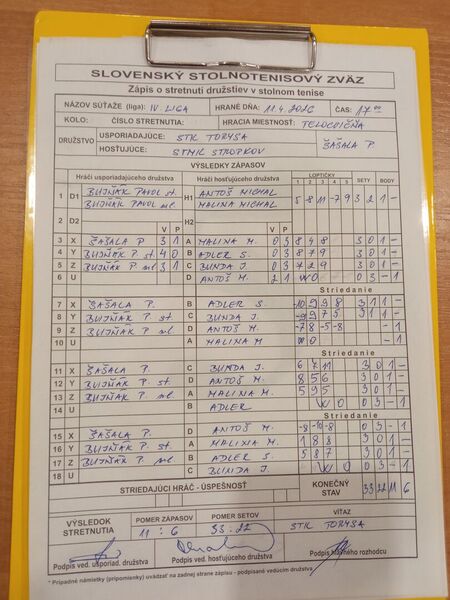 SLOVENSKÝ STOLNOTENISOVÝ ZVÄZ
Zápis o stretnutí družstiev v stolnom tenise
NÁZOV SÚŤAŽE (liga): IV. LIGA HRANÉ DŇA: 11.4.2026 ČAS: 17 00
KOLO: ČÍSLO STRETNUTIA: HRACIA MIESTNOSŤ: TELOCVIČŇA
DRUŽSTVO USPORIADAJÚCE: STK TORYSA ŠAŠALA P.
HOSŤUJÚCE: STMIL STROPKOV
VÝSLEDKY ZÁPASOV
Hráči usporiadajúceho družstva Hráči hosťujúceho družstva LOPTIČKY SETY BODY
1 2 3 4 5
1 D1 BUJŇÁK PAVOL st. H1 ANTOŠ MICHAL 5 8 11 -7 9 3 2 1 -
BUJŇÁK PAVOL ml. MALINA MICHAL
2 D2 H2
V P V P
3 X ŠAŠALA P 3 1 A MALINA M. 0 3 8 4 8 3 0 1 -
4 Y BUJŇÁK P. st. 4 0 B ADLER S. 0 3 8 7 9 3 0 1 -
5 Z BUJŇÁK P. ml 3 1 C BUNDA J. 0 3 7 2 9 3 0 1 -
6 U D ANTOŠ M. 2 1 WO 0 3 - 1
Striedanie
7 X ŠAŠALA P. B ADLER S. -10 9 9 8 3 1 1 -
8 Y BUJŇÁK P. st C BUNDA J. -9 9 7 5 3 1 1 -
9 Z BUJŇÁK P. ml. D ANTOŠ M. -7 8 -5 -8 - 1
10 U A MALINA M WO - 1
Striedanie
11 X ŠAŠALA P. C BUNDA J. 6 7 11 3 0 1 -
12 Y BUJŇÁK P. st. D ANTOŠ M. 8 5 6 3 0 1 -
13 Z BUJŇÁK P. ml. A MALINA M. 5 9 5 3 0 1 -
14 U B ADLER WO 0 3 - 1
Striedanie
15 X ŠAŠALA P. D ANTOŠ M. -8 -10 -8 0 3 - 1
16 Y BUJŇÁK P. st. A MALINA M. 1 8 8 3 0 1 -
17 Z BUJŇÁK P. ml. B ADLER S. 5 8 7 3 0 1 -
18 U C BUNDA J. WO 0 3 - 1
STRIEDAJÚCI HRÁČ - ÚSPEŠNOSŤ KONEČNÝ STAV 33 22 11 6
VÝSLEDOK STRETNUTIA POMER ZÁPASOV POMER SETOV VÍŤAZ
11 : 6 33 : 22 STK TORYSA
Podpis ved. usporiad. družstva Podpis ved. hosťuj. družstva Podpis hlavného rozhodcu
* Prípadné námietky (pripomienky) uvádzať na zadnej strane zápisu - podpísané vedúcim družstva